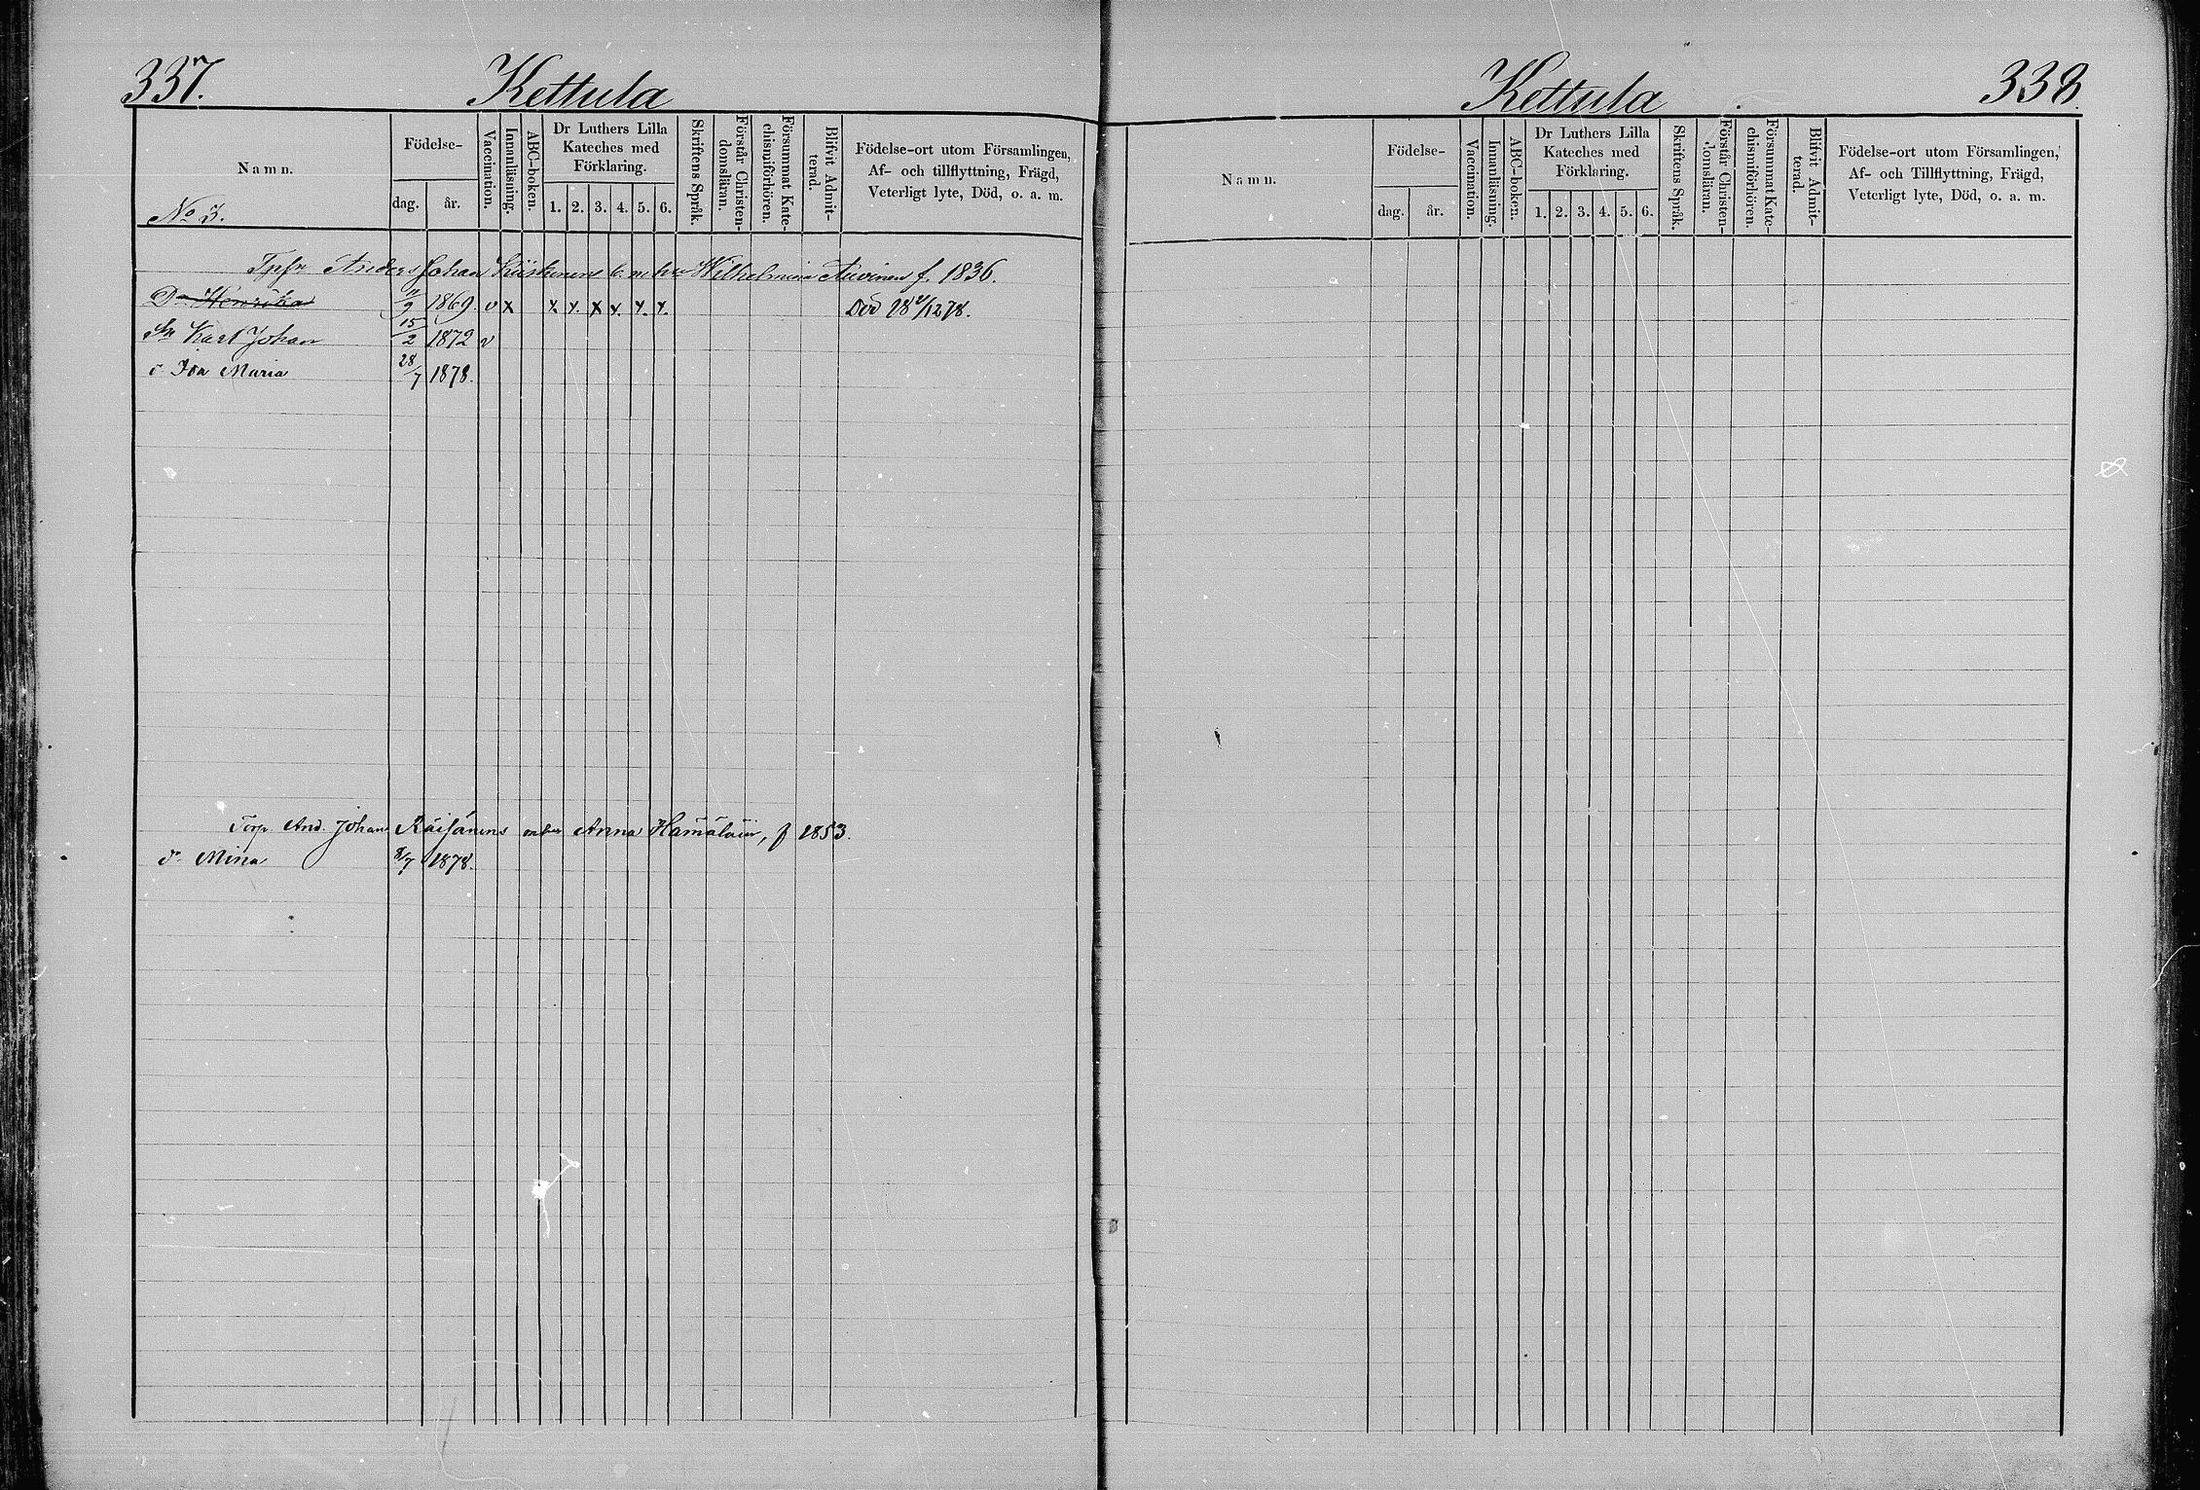 337.
Kettula
Namn.
Födelse-
dag.
år.
Vaccination.
Innanläsning.
ABC-boken.
Dr Luthers Lilla Kateches med Förklaring.
1. 2. 3. 4. 5. 6.
Skriftens Språk.
Förstår Christendomsläran.
Försummat Katechismiförhören.
Blifvit Admitterad.
Födelse-ort utom Församlingen,
Af- och tillflyttning, Frägd,
Veterligt lyte, Död, o. a. m.
No 3.
Anders Johan m hu Wilhelmina Auvinen f. 1836.
Dr Henrika 1869. v x x. x. x x. x. x. Död
Sn Karl Johan 15/2 1872 v
d. Ida Maria 28/7 1878.
Torp. And. Johan Räisänens Anna Hämäläin, f 1853.
dr Mina 8/7 1878.
Kettula
338.
Namn.
Födelse-
dag.
år.
Vaccination.
Innanläsning.
ABC-boken.
Dr Luthers Lilla Kateches med Förklaring.
1. 2. 3. 4. 5. 6.
Skriftens Språk.
Förstår Christendomsläran.
Försummat Katechismiförhören.
Blifvit Admitterad.
Födelse-ort utom Församlingen,
Af- och Tillflyttning, Frägd,
Veterligt lyte, Död, o. a. m.